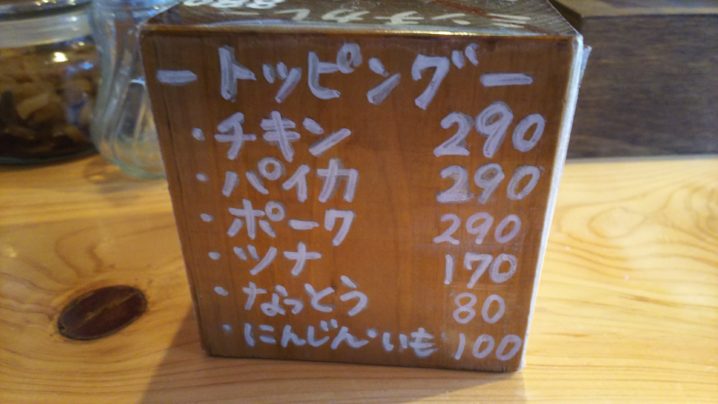 ミンチカレー 880
ートッピングー
・チキン 290
・パイカ 290
・ポーク 290
・ツナ 170
・なっとう 80
・にんじん・いも 100